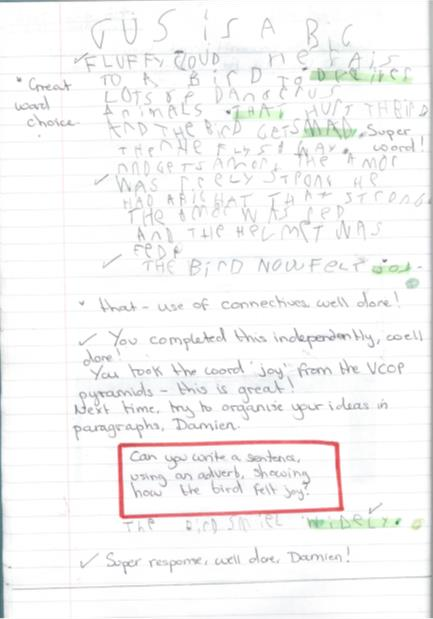 GUS iS A B C
✓ FLUFFY CLOUD he tais
* Great word choice.
TO A BiRD To
LOTS OF DANGERUS
ANiMALS. THAT HURT THE BiRD
AND THE BiRD GETS MAD. Super word!
THEN HE FLYS AWAY
AND GETS AMOR THE AMOR
✓ WAS REELY STRONG HE
HAD A THAT STRONG
THE AMER WAS RED
AND THE HELMET WAS
✓ THE BiRD NOW FELT joy.
* that - use of connectives, well done!
✓ You completed this independently, well
done!
You took the word 'joy' from the VCOP
pyramids - this is great!
Next time, try to organise your ideas in
paragraphs, Damien.
Can you write a sentence,
using an adverb, showing
how the bird felt joy?
THE BiRD SMIEL WiDELY.
✓ Super response, well done, Damien!